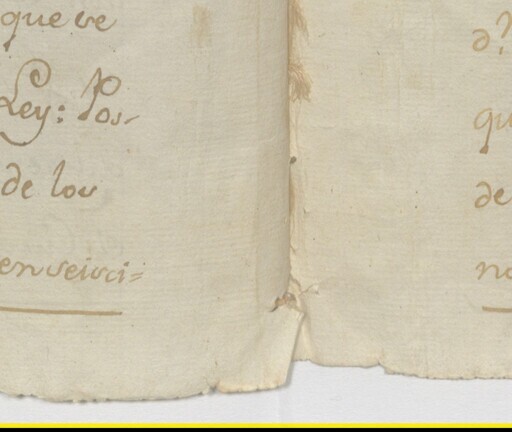 que se
Ley: Pos-
de los
en seisci=
d?
qu
de
no